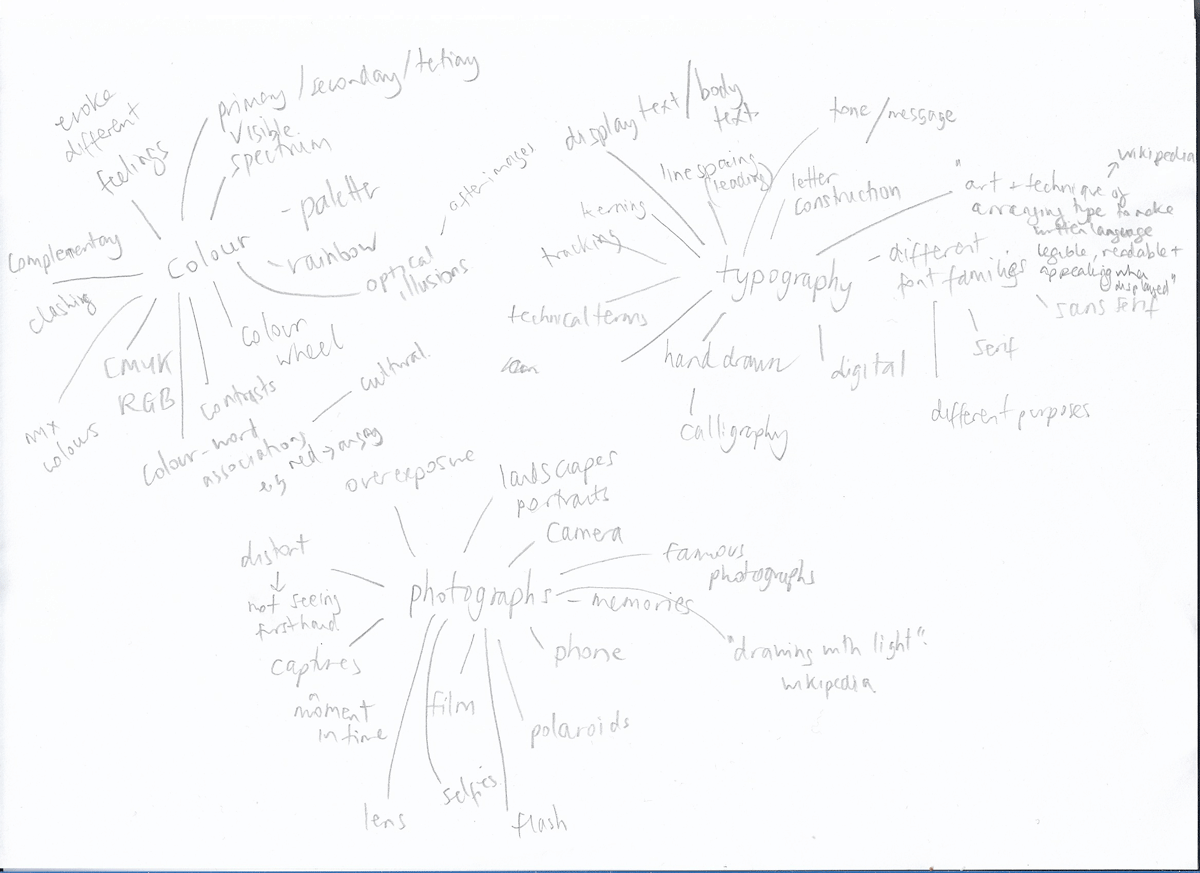 evoke
different
feelings
primary/secondary/tetiary
visible
spectrum
- palette
rainbow
afterimages
optical
illusions
complementary
Colour
clashing
CMYK
RGB
colour
wheel
contrasts
mix
colours
colour-word
associations
eg red → angry
cultural.
display text/body
text
tone/message
line spacing
(leading)
letter
construction
kerning
tracking
technical terms
typography
wikipedia
"art + technique of
arranging type to make
written language
legible, readable +
appealing when
displayed"
- different
font families
sans serif
serif
different purposes
hand drawn
calligraphy
digital
overexposure
landscapes
portraits
camera
famous
photographs
distort
not seeing
firsthand
photographs
- memories
"drawing with light".
wikipedia
captures
a
moment
in time
film
phone
polaroids
selfies
lens
flash